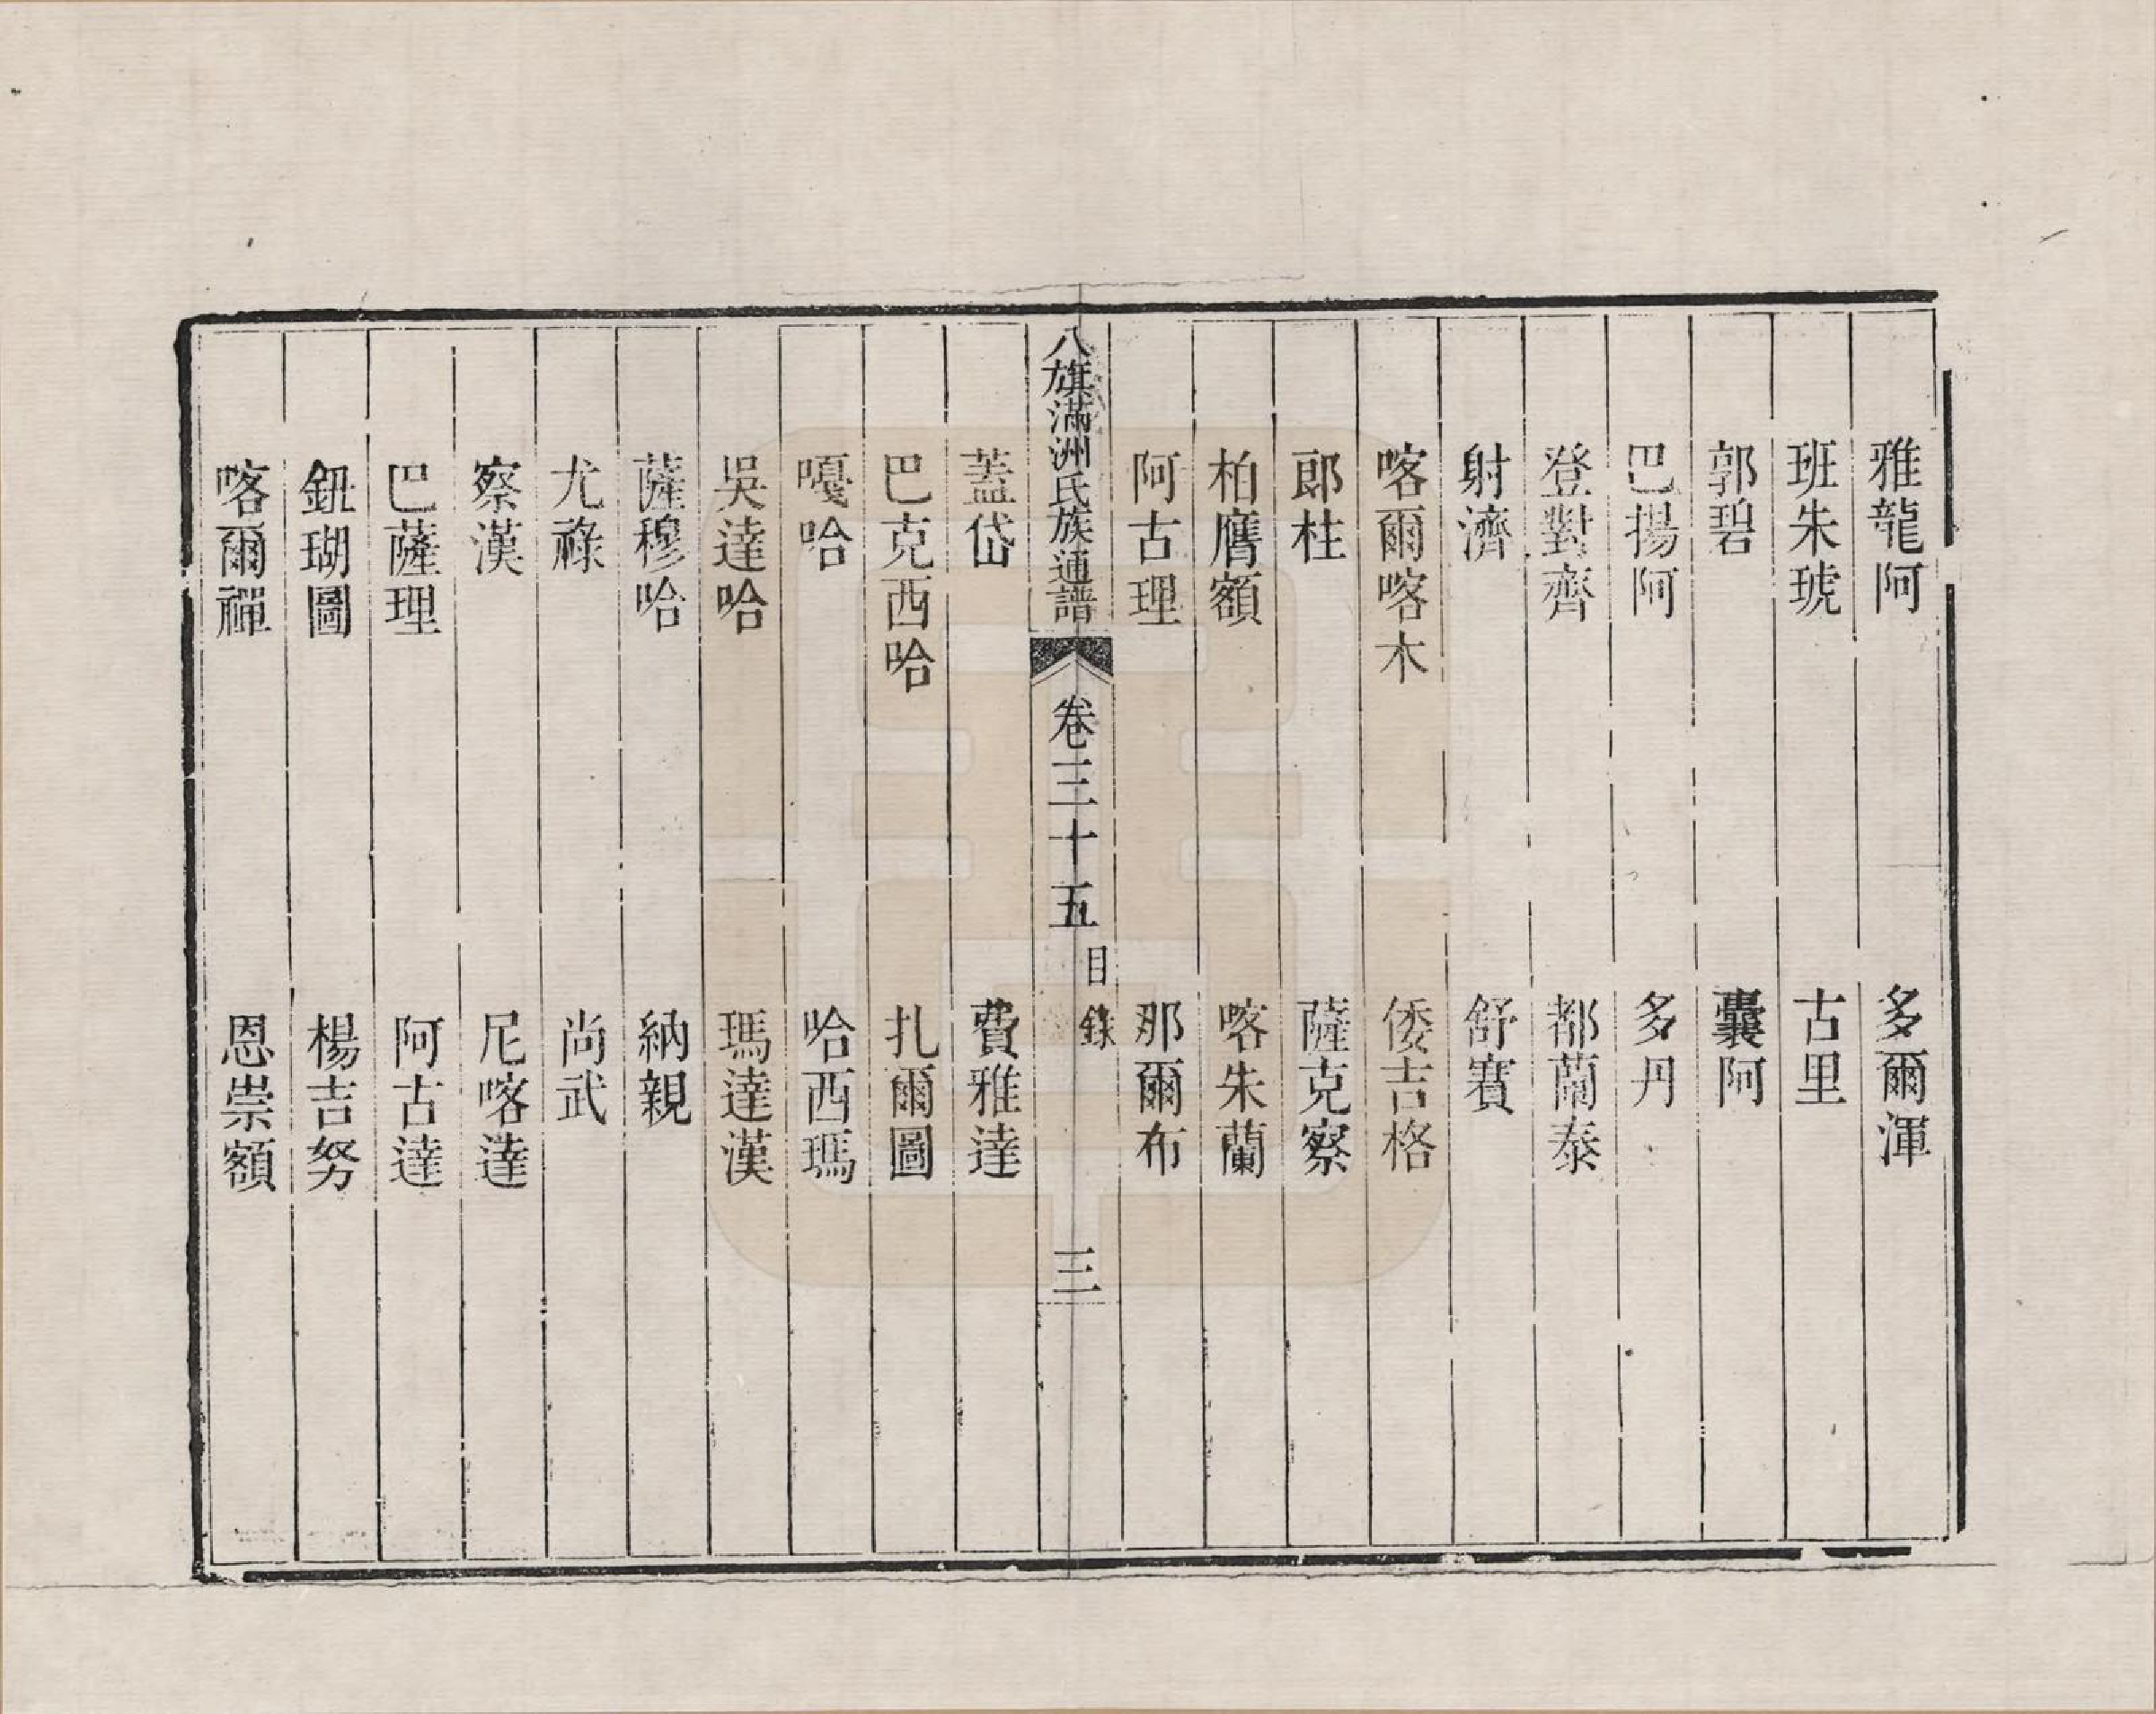 雅龍阿　多爾渾
班朱琥　古里
郭碧　囊阿
巴揚阿　多丹
登對齊　都蘭泰
射濟　舒賽
喀爾喀木　倭吉格
郎柱　薩克察
柏膺額　喀朱蘭
阿古理　那爾布
八旗滿洲氏族通譜　卷三十五　目錄　三
蓋岱　費雅達
巴克西哈　扎爾圖
嘎哈　哈西瑪
吳達哈　瑪達漢
薩穆哈　納親
尤祿　尚武
察漢　尼喀達
巴薩理　阿古達
鈕瑚圖　楊吉努
喀爾禪　恩崇額